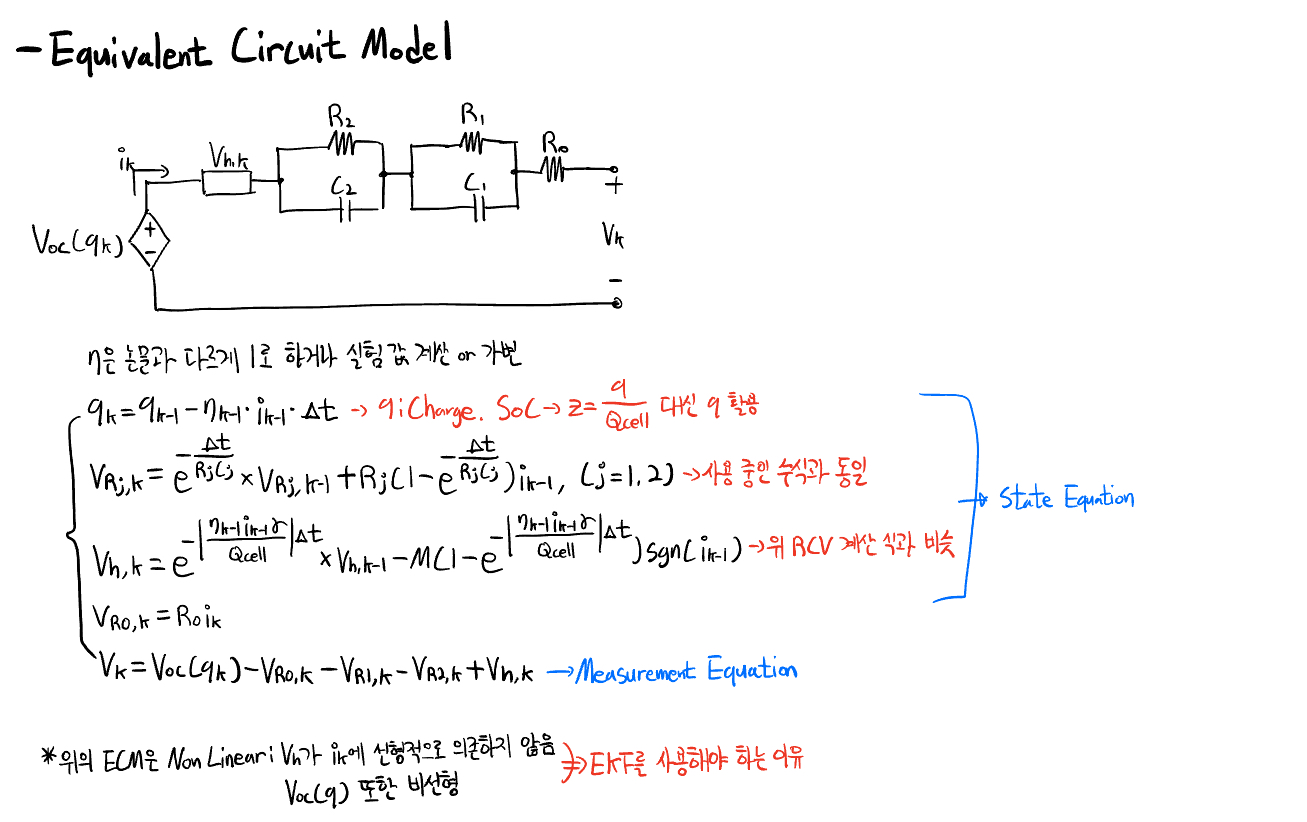 - Equivalent Circuit Model
R₂
R₁
R₀
iₖ
Vh,k
C₂
C₁
+
Voc(qₖ)
+
-
Vₖ
-
η은 논문과 다르게 1로 하거나 실험 값 계산 or 가변
qₖ = qₖ₋₁ - ηₖ₋₁· iₖ₋₁ · Δt → q : Charge. SoC → z = q/Qcell 대신 q 활용
V_Rj,k = e^(-Δt/RjCj) × V_Rj,k-1 + Rj(1 - e^(-Δt/RjCj)) iₖ₋₁, (j=1,2) → 사용 중인 수식과 동일
→ State Equation
V_h,k = e^(-|ηₖ₋₁iₖ₋₁γ/Qcell|Δt) × V_h,k-1 - M(1 - e^(-|ηₖ₋₁iₖ₋₁γ/Qcell|Δt)) sgn(iₖ₋₁) → 위 RCV 계산 식과 비슷
V_R0,k = R₀iₖ
Vₖ = Voc(qₖ) - V_R0,k - V_R1,k - V_R2,k + V_h,k → Measurement Equation
* 위의 ECM은 Non Linear : Vh가 iₖ에 선형적으로 의존하지 않음
⇒ EKF를 사용해야 하는 이유
Voc(q) 또한 비선형